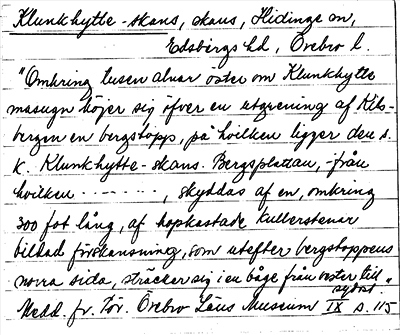 Klunkhytte-skans, skans, Hidinge sn,
Edsbergs hd, Örebro l.
"Omkring tusen alnar öster om Klunkhytte
masugn höjer sig öfver en utgrening af Kils-
bergen en bergstopp, på hvilken ligger den s.
k. Klunkhytte-skans. Bergsplatån, från
hvilken - - - - - - -, skyddas af en, omkring
300 fot lång, af hopkastade kullerstenar
bildad förskansning, som utefter bergstoppens
norra sida, sträcker sig i en båge från vester till
sydost."
Medd. fr. För. Örebro Läns Museum IX s. 115